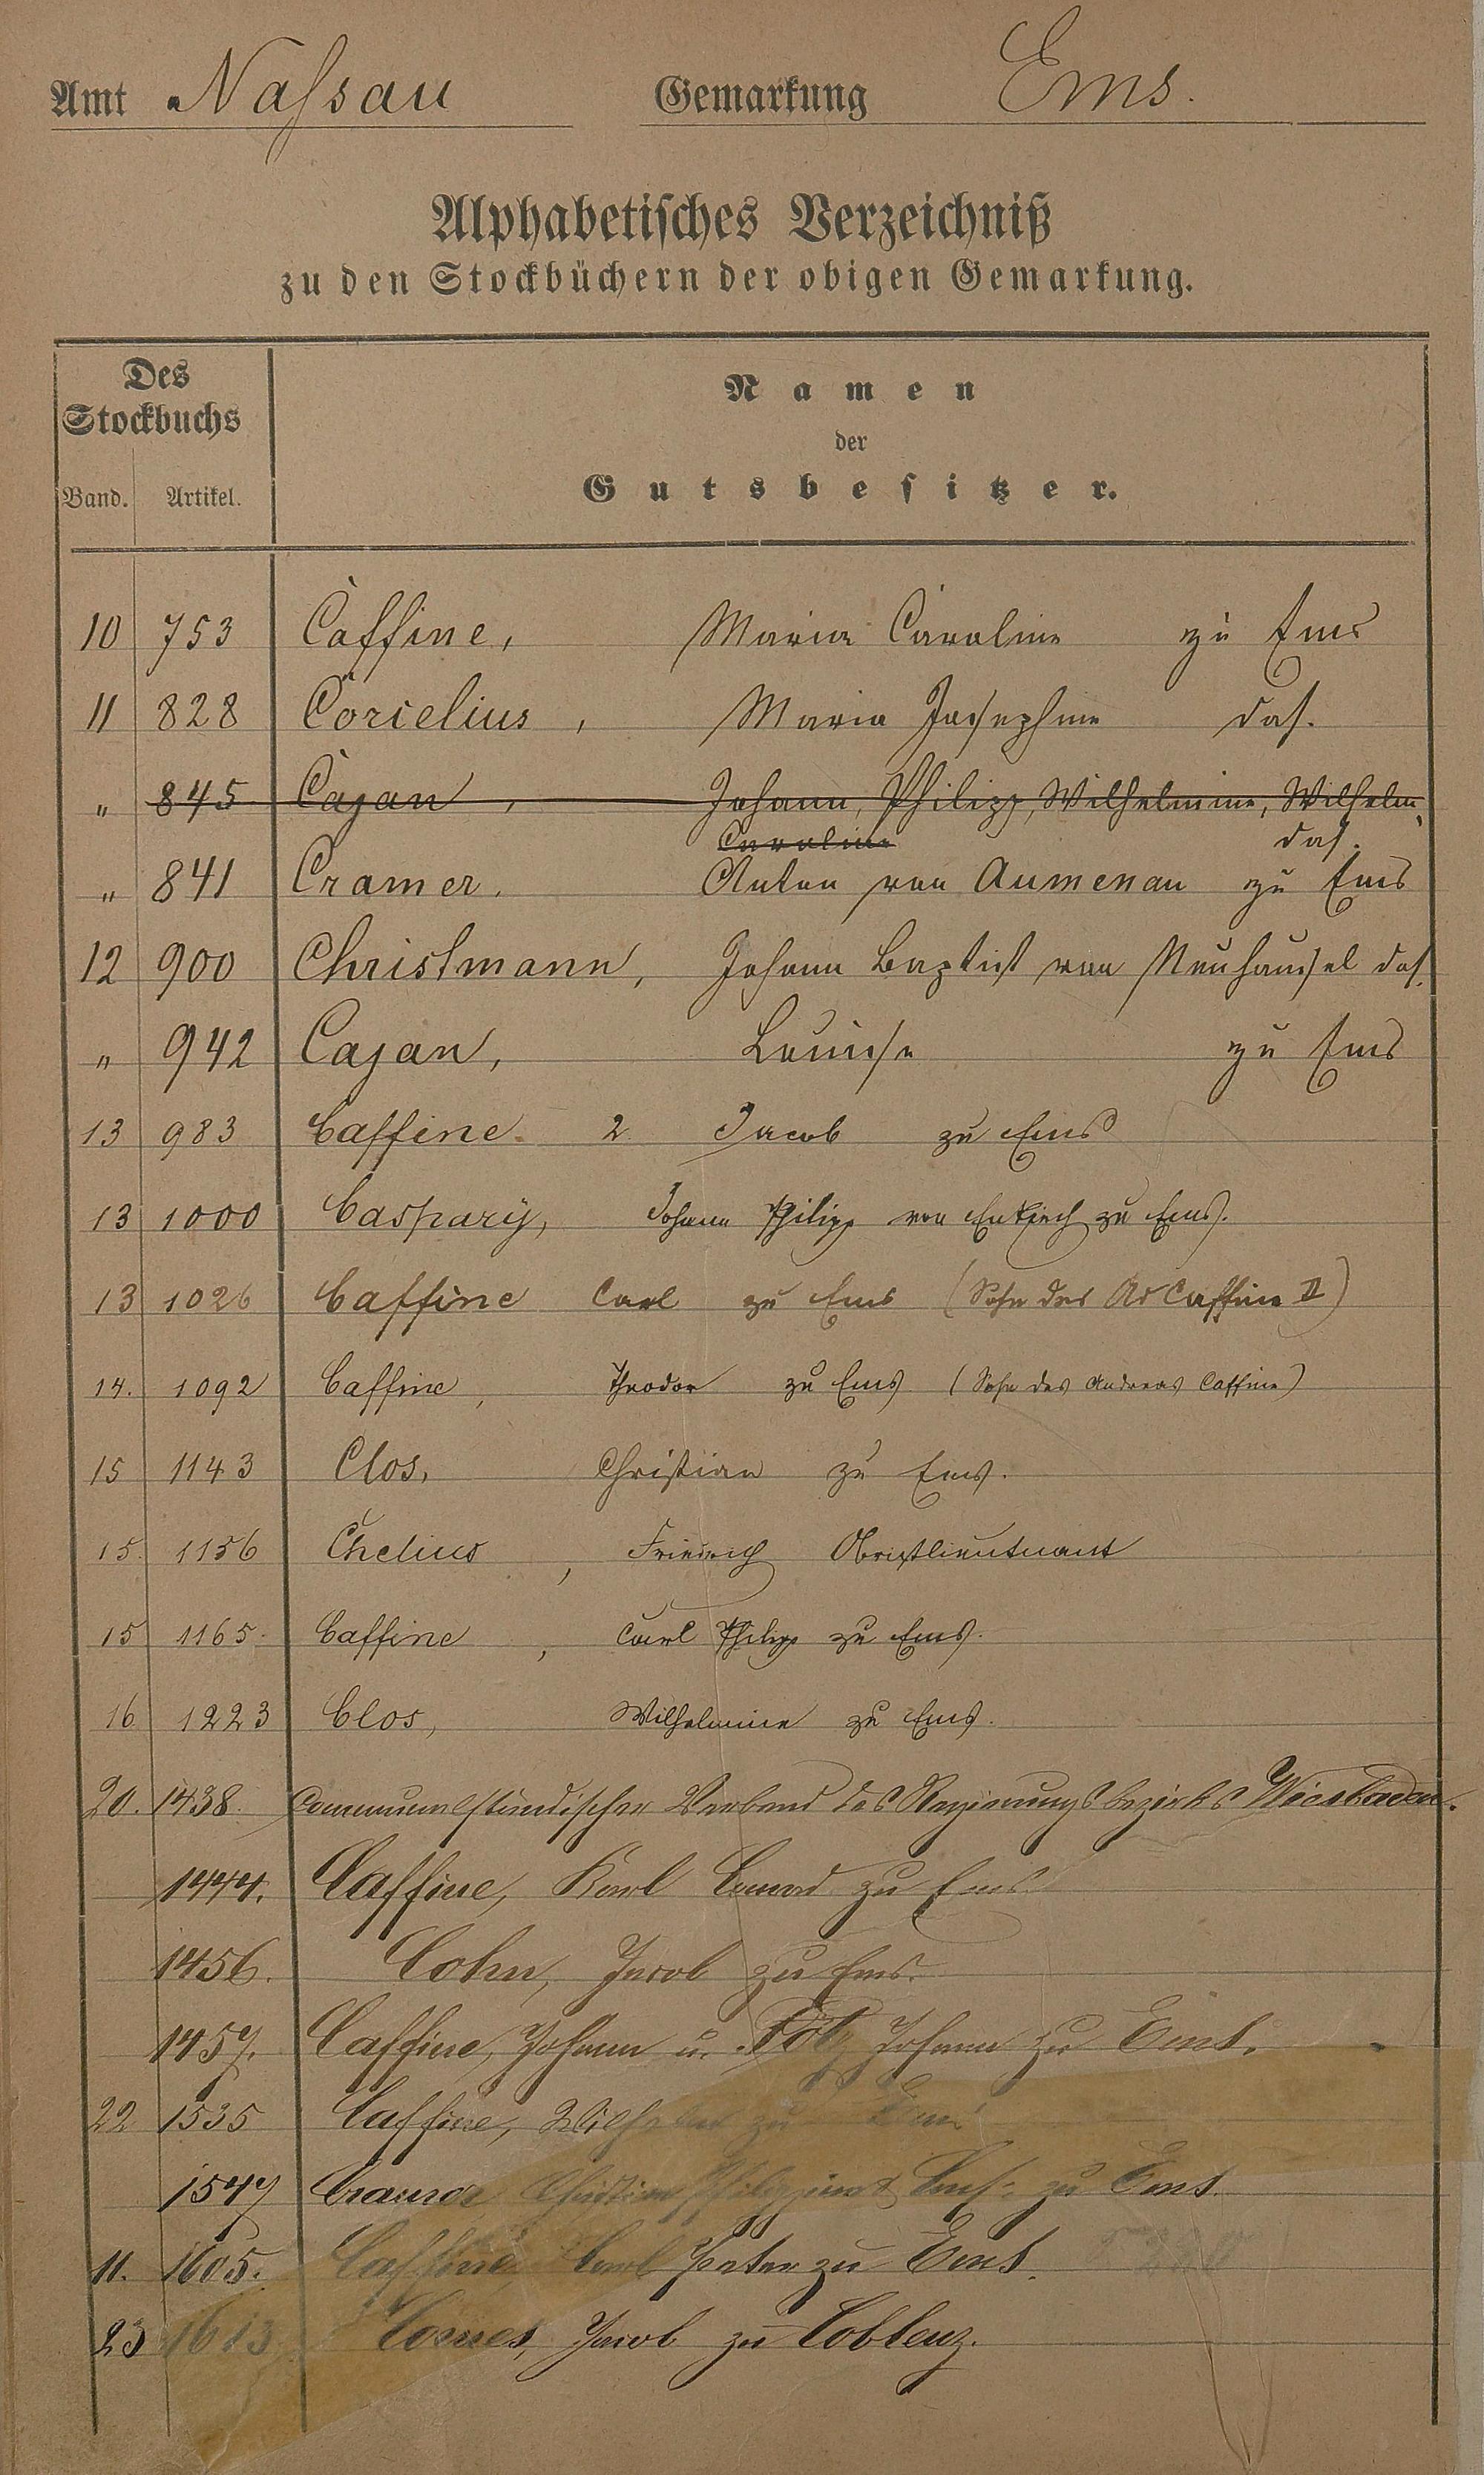 Amt Nassau Gemarkung Ems.
Alphabetisches Verzeichniß
zu den Stockbüchern der obigen Gemarkung.
Des
Stockbuchs
Band. Artikel.
Namen
der
Gutsbesitzer.
10 753 Caffine, Maria Caroline zu Ems
11 828 Corcelius, Maria Josephine das.
" 845 Cajan, Johann, Philipp, Wilhelmine, Wilhelm,
Caroline das.
" 841 Cramer, Anton von Aumenau zu Ems
12 900 Christmann, Johann Baptist von Neuhäusel das.
" 942 Cajan, Louise zu Ems
13 983 Caffine. 2 Jacob zu Ems
13 1000 Caspary, Johann Philipp von Enkirch zu Ems.
13 1026 Caffine Carl zu Ems (Sohn des Ad Caffine II)
14. 1092 Caffine, Theodor zu Ems (Sohn des Andreas Caffine)
15 1143 Clos, Christian zu Ems.
15. 1156 Chelius, Friedrich Obristlieutnant
15 1165. Caffine, Carl Philipp zu Ems.
16 1223 Clos, Wilhelmine zu Ems.
20. 1438. Communalständischer Verband des Regierungsbezirks Wiesbaden.
1444. Caffine, Karl Conrad zu Ems
1456. Cohn, Jacob zu Ems.
1457. Caffine, Johann u. Johann zu Ems.
22 1535 Caffine, Wilhelm zu Ems
1547 Christian zu Ems.
11. 1605. Caffine, Carl Peter zu Ems.
23 1613 Jacob zu Coblenz.